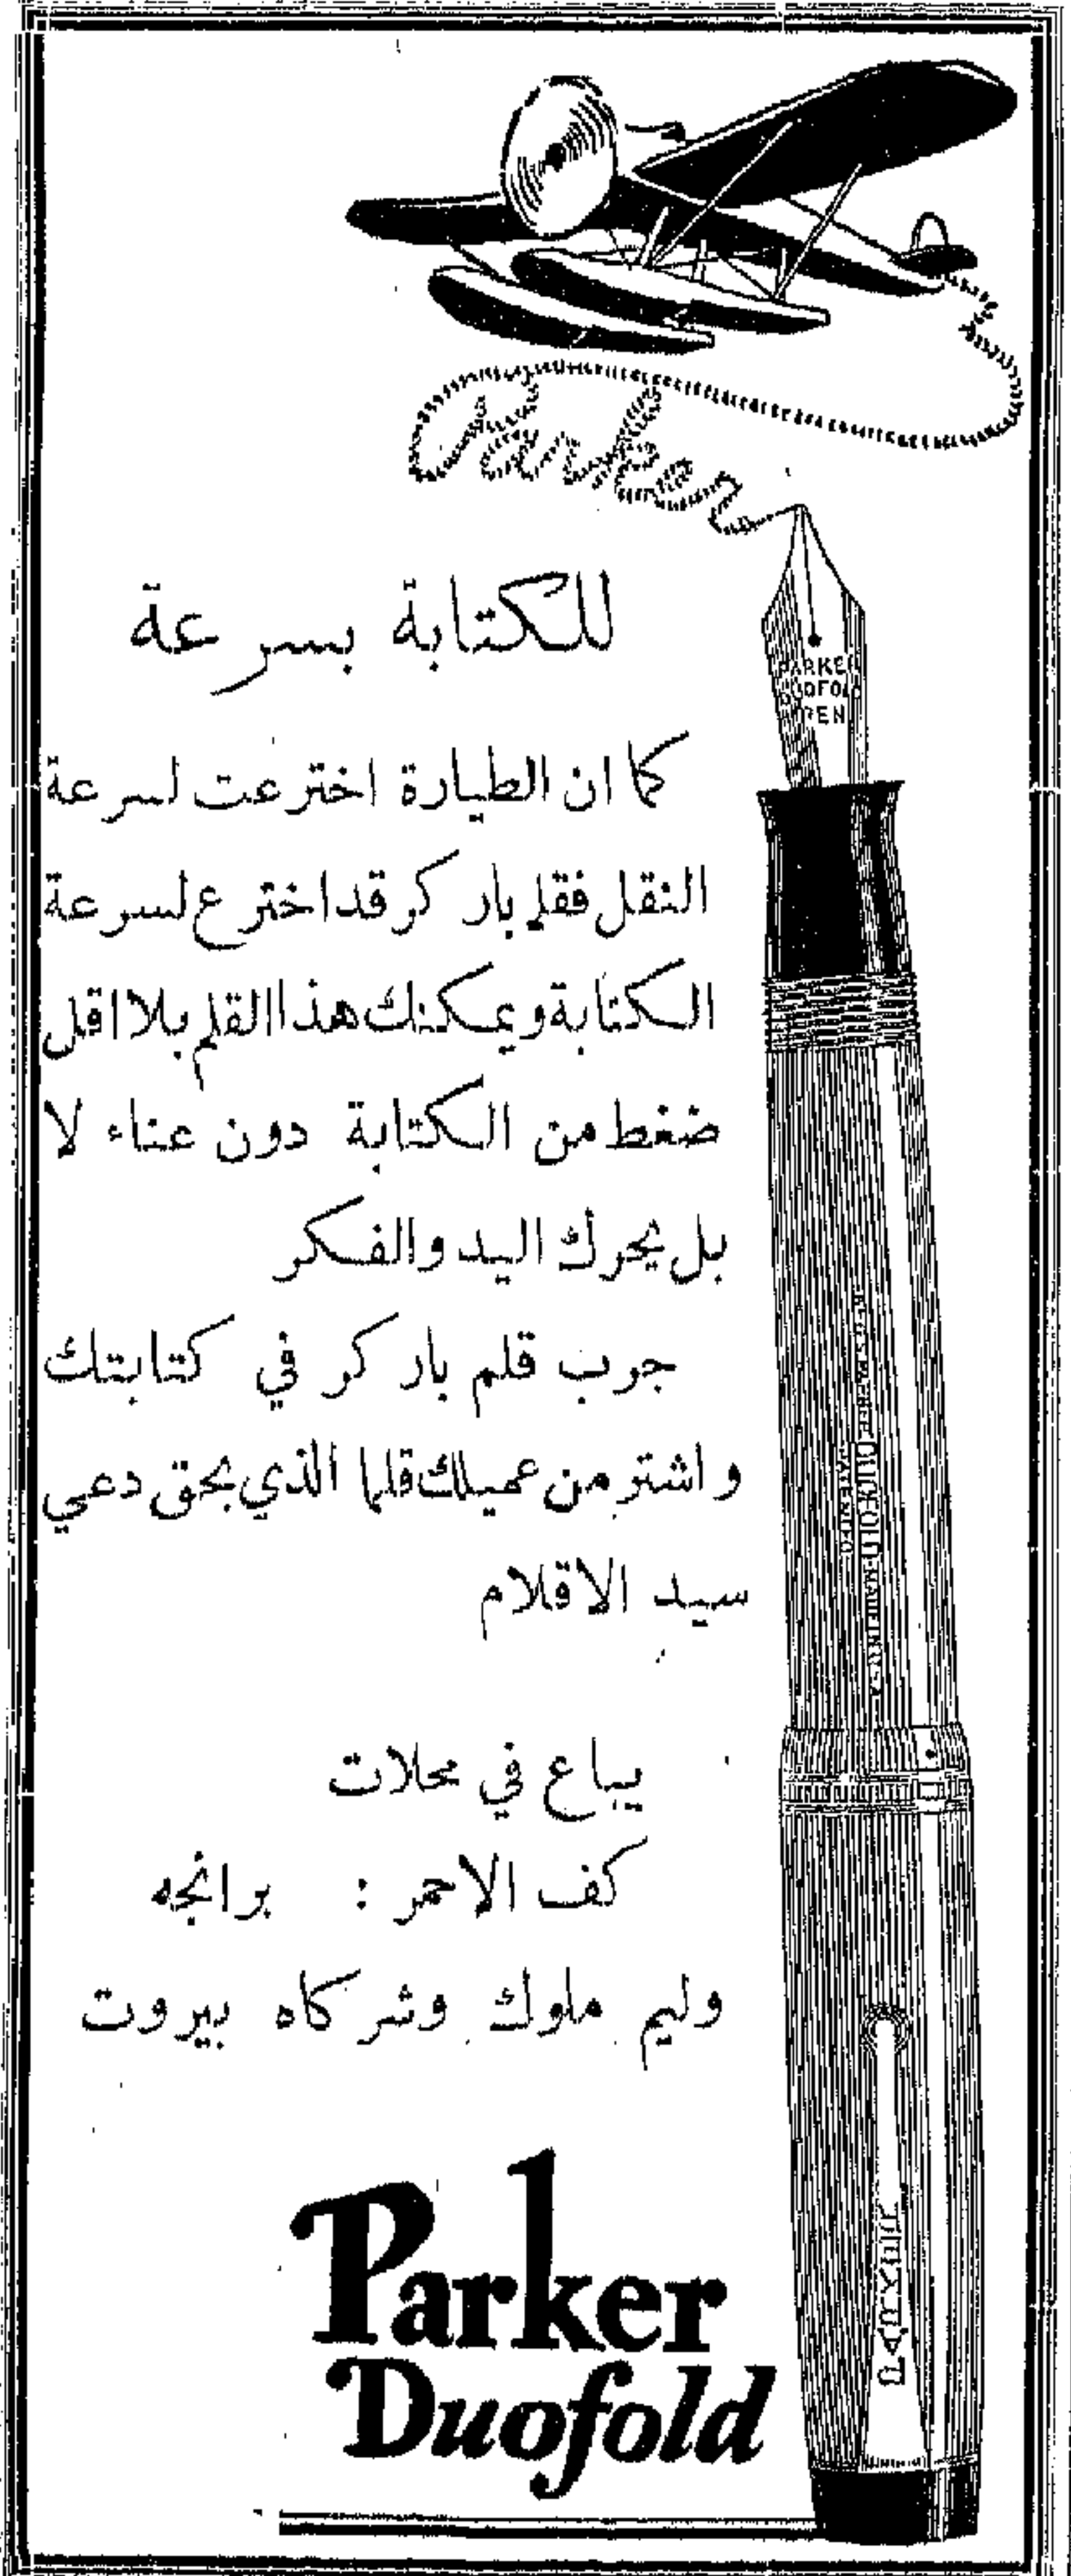 Parker
PARKER
DUOFOLD
PEN
للكتابة بسرعة
كما ان الطيارة اخترعت لسرعة
النقل فقلم باركر قد اخترع لسرعة
الكتابة ويمكنك هذا القلم بلا اقل
ضغط من الكتابة دون عناء لا
بل يحرك اليد والفكر
جرب قلم باركر في كتابتك
واشتر من عميلك قلما الذي بحق دعي
سيد الاقلام
DUOFOLD
يباع في محلات
كف الاحمر : برانجه
وليم ملوك وشركاه بيروت
PARKER
Parker
Duofold